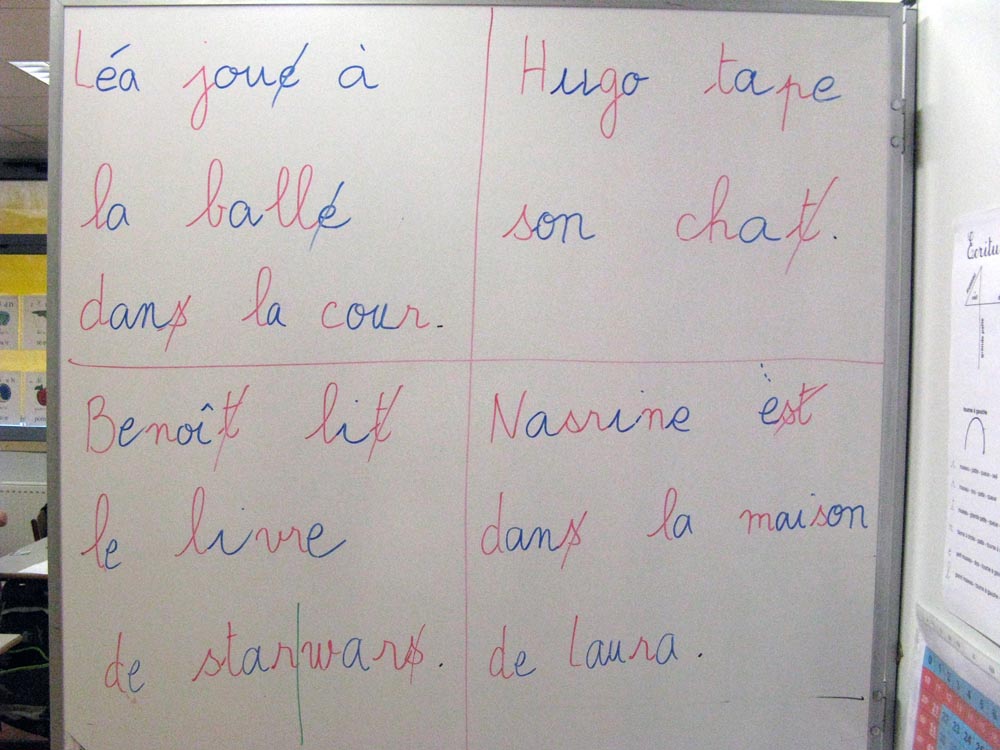 Léa joue à
la balle
dans la cour.
Hugo tape
son chat.
Benoît lit
le livre
de starwars.
Nasrine èst
dans la maison
de Laura.
Ecritu